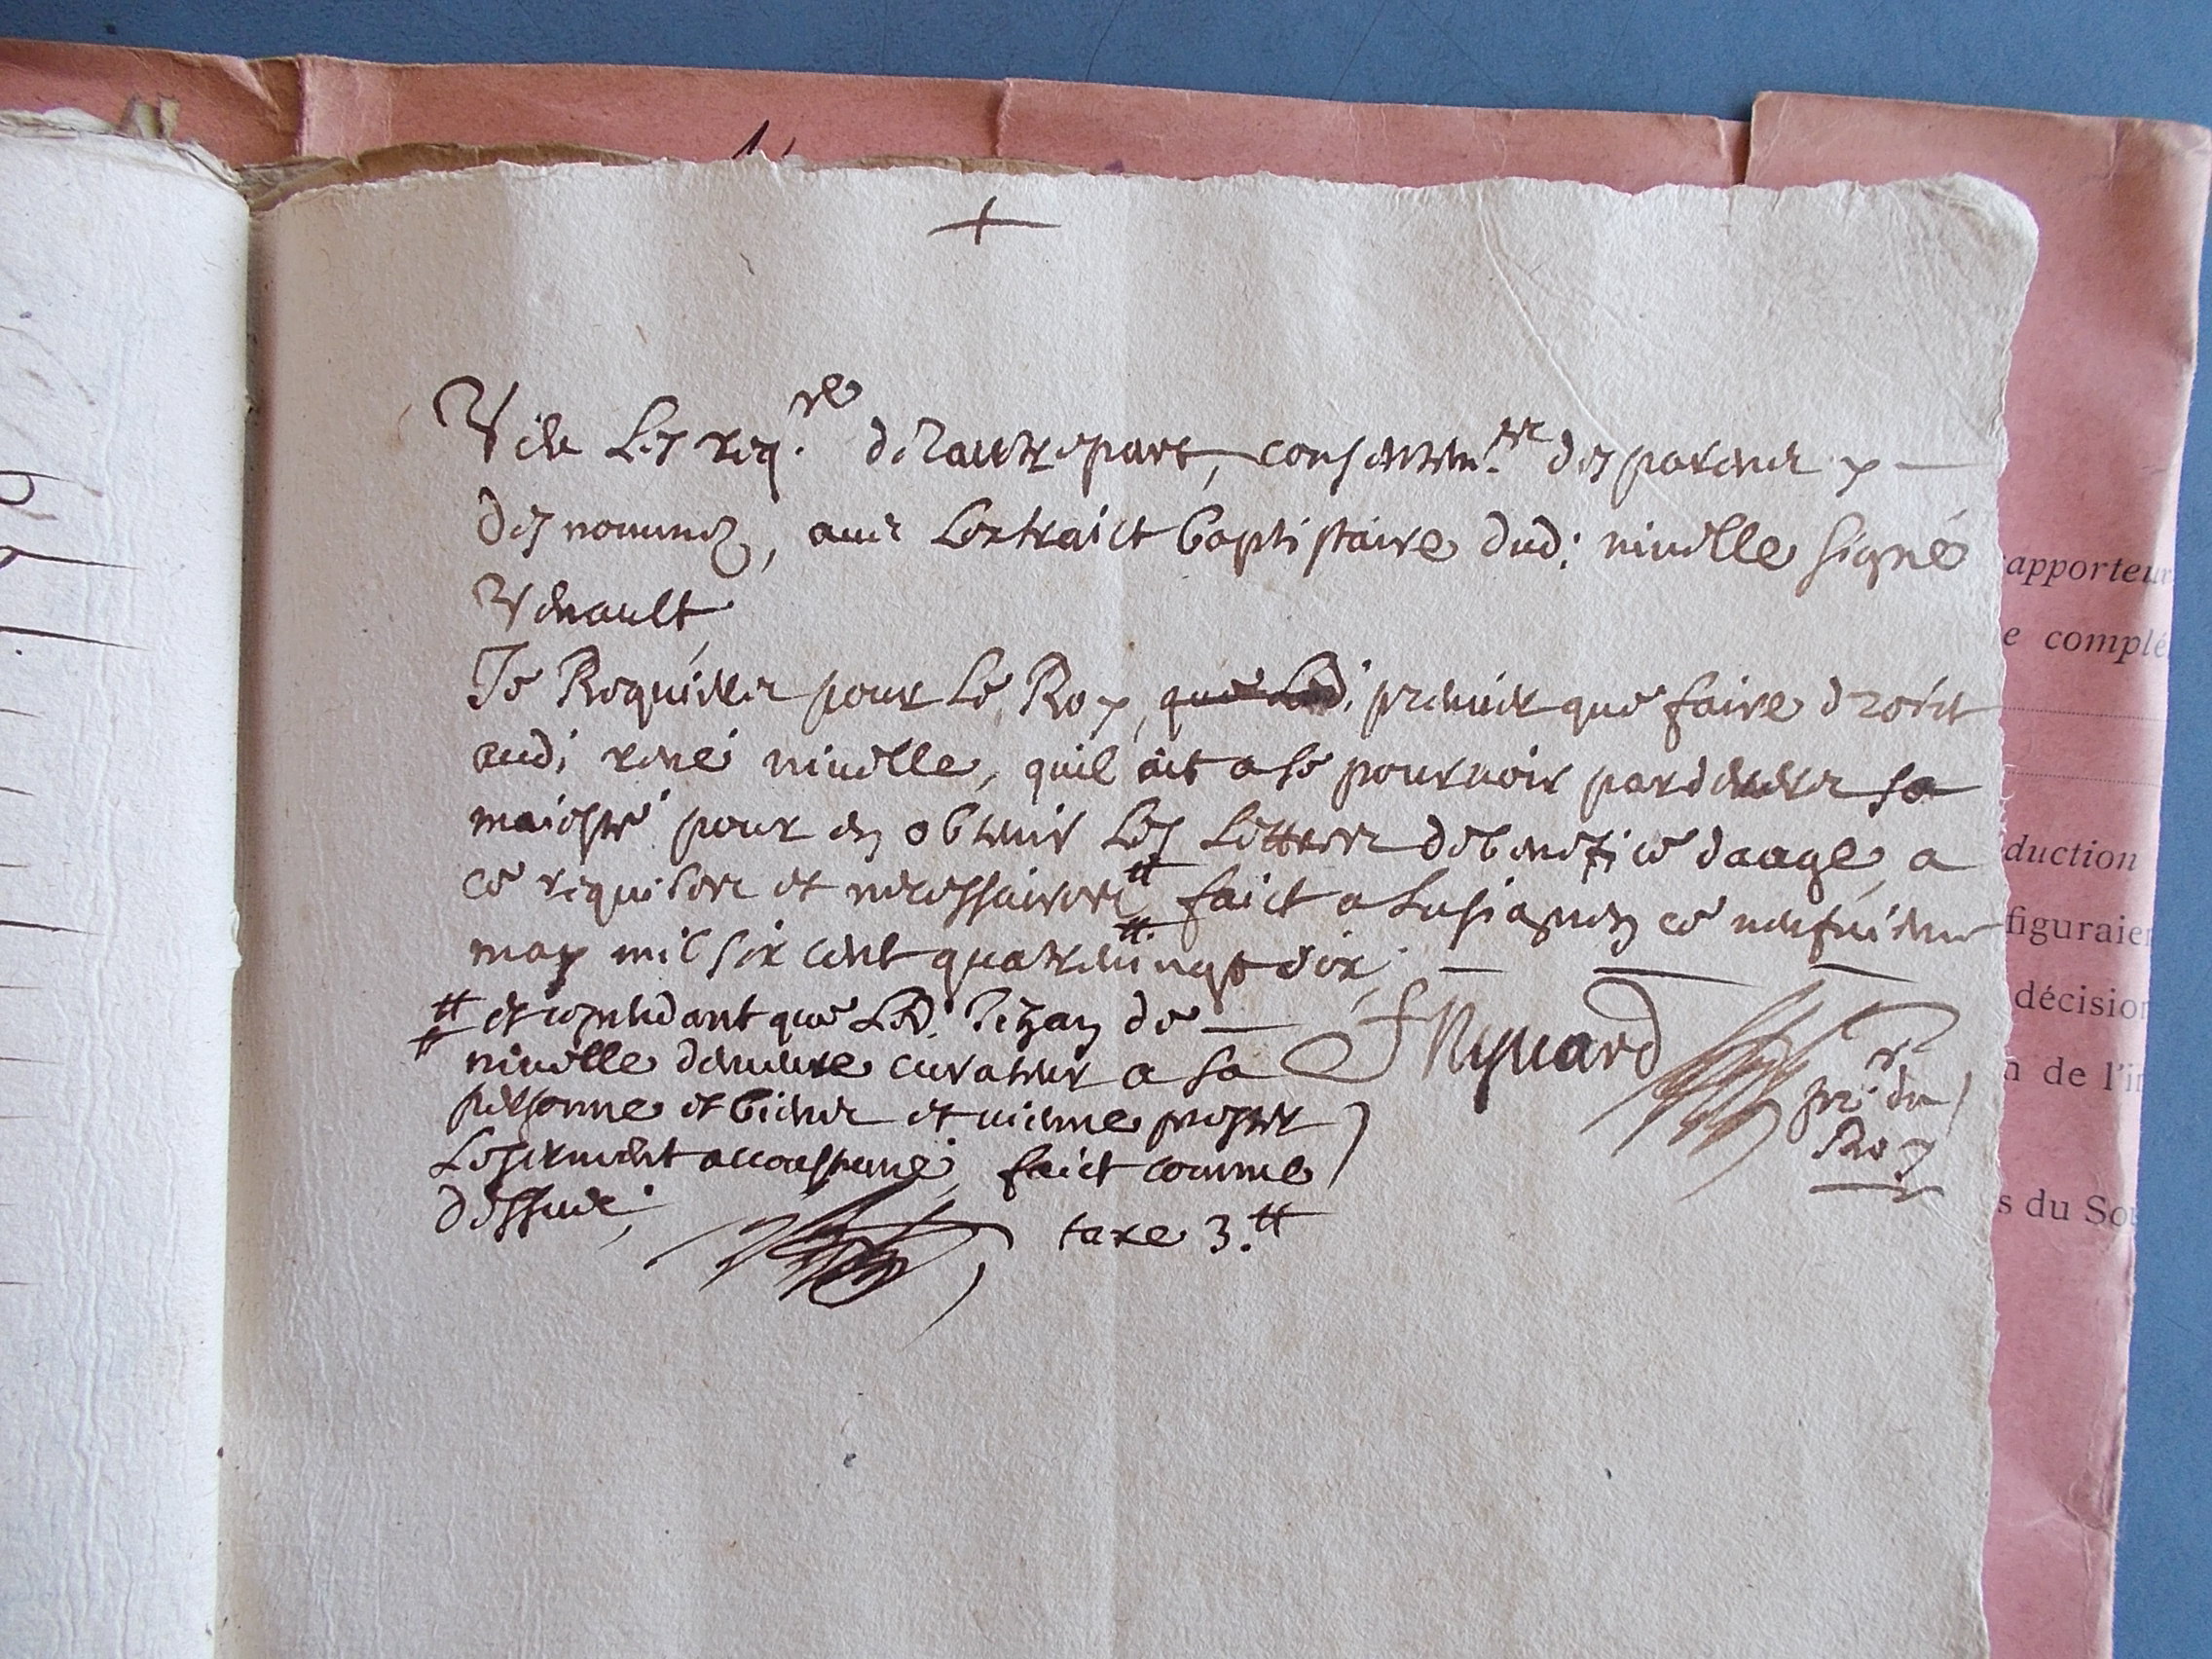 +
Veu Les req.te de lautre part, consentem.nt des parens y
desnommez, avec Lextraict baptistaire dud: nivelle signé
Venault,
Je Requiers pour Le Roy, que Led; premier que faire droict
aud; rené nivelle, quil ait a se pourvoir pardevers sa
maiesté pour en obtenir Les Lettres de benefice daage, a
ce requises et necessaires # faict a Lusignen ce
may mil six cent quatrevingt dix;
# et cependant que Led. de
nivelle demeure curateur a sa
personne et biens et vienne prester
Leserment accoustumé, faict comme
dessus;
taxe 3.tt
pr.r du
Roy
apporteur
e complé
duction
figuraie
décision
n de l'i
s du So